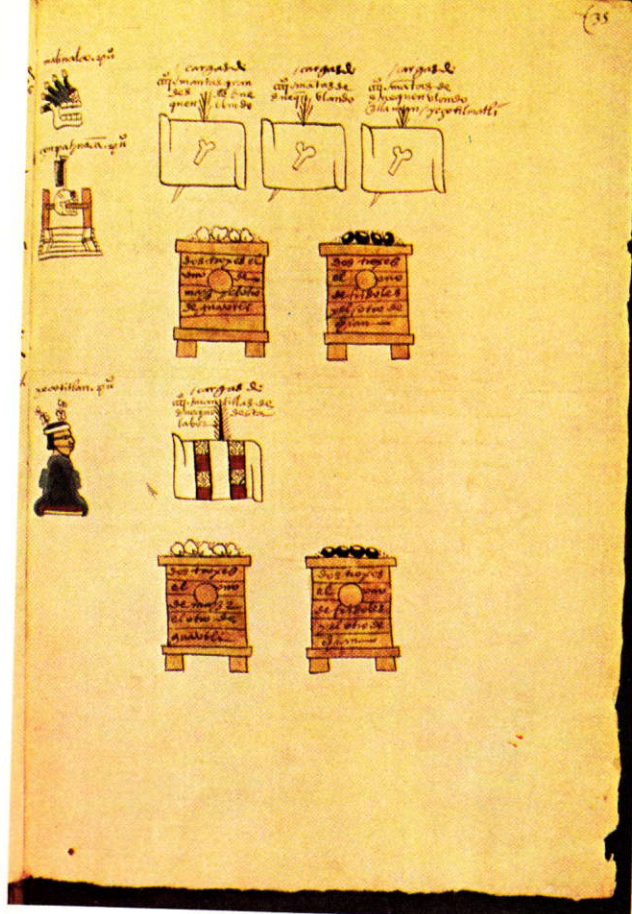 35
malinalco. puº
/cargas de
mantas gran
des
quen
/cargas de
mantas de
enequen blando
/cargas de
mantas de
enequen blando
dos troxes el
uno de
maiz y el otro
de guautli
dos troxes
el uno
de frisoles
y el otro de
chian
xocotitlan. puº
/cargas de
mantillas de
enequen desta
labor
dos troxes
el uno
de maiz
el otro de
guautli
dos troxes
el uno
de frisoles
y el otro de
chian